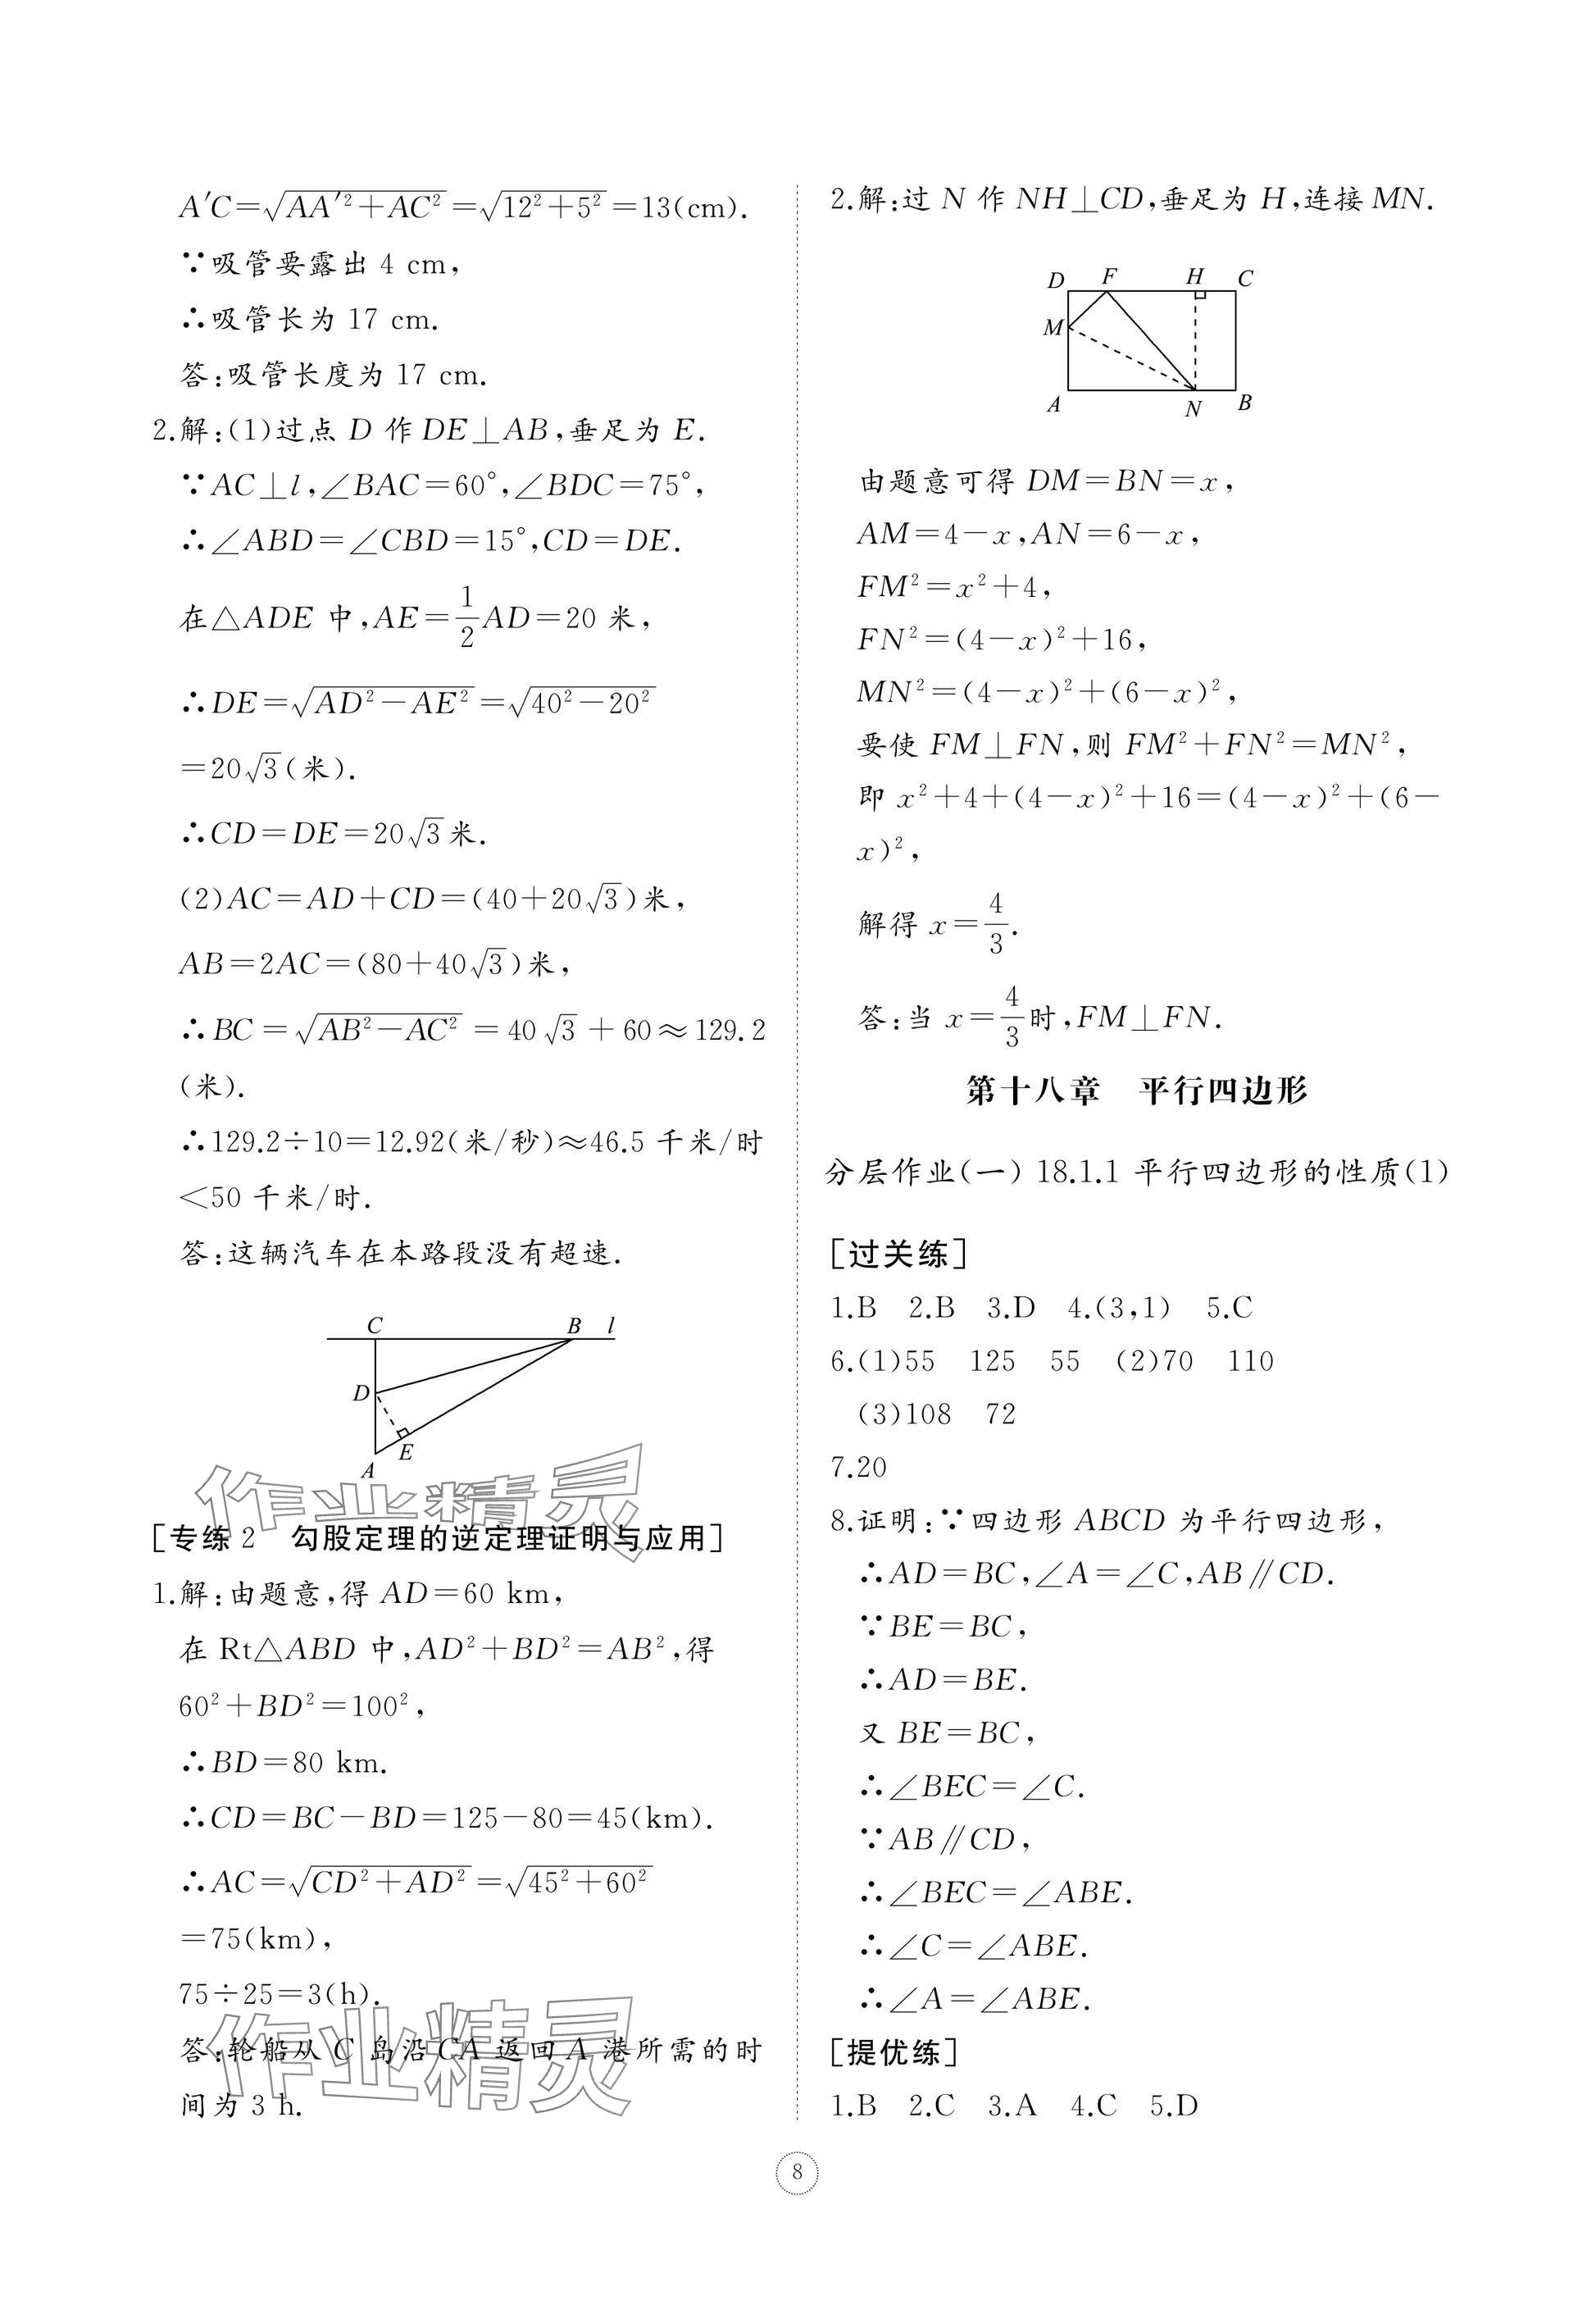 A′C=√(AA′²+AC²)=√(12²+5²)=13(cm).
∵吸管要露出 4 cm,
∴吸管长为 17 cm.
答:吸管长度为 17 cm.
2.解:(1)过点 D 作 DE⊥AB,垂足为 E.
∵AC⊥l,∠BAC=60°,∠BDC=75°,
∴∠ABD=∠CBD=15°,CD=DE.
在△ADE 中,AE=1/2AD=20 米,
∴DE=√(AD²−AE²)=√(40²−20²)
=20√3(米).
∴CD=DE=20√3米.
(2)AC=AD+CD=(40+20√3)米,
AB=2AC=(80+40√3)米,
∴BC=√(AB²−AC²)=40√3+60≈129.2
(米).
∴129.2÷10=12.92(米/秒)≈46.5 千米/时
<50 千米/时.
答:这辆汽车在本路段没有超速.
C B l
D
E
A
作业精灵
[专练 2 勾股定理的逆定理证明与应用]
1.解:由题意,得 AD=60 km,
在 Rt△ABD 中,AD²+BD²=AB²,得
60²+BD²=100²,
∴BD=80 km.
∴CD=BC−BD=125−80=45(km).
∴AC=√(CD²+AD²)=√(45²+60²)
=75(km),
75÷25=3(h).
答:轮船从 C 岛沿 CA 返回 A 港所需的时
间为 3 h.
作业精灵
2.解:过 N 作 NH⊥CD,垂足为 H,连接 MN.
D F H C
M
A N B
由题意可得 DM=BN=x,
AM=4−x,AN=6−x,
FM²=x²+4,
FN²=(4−x)²+16,
MN²=(4−x)²+(6−x)²,
要使 FM⊥FN,则 FM²+FN²=MN²,
即 x²+4+(4−x)²+16=(4−x)²+(6−
x)²,
解得 x=4/3.
答:当 x=4/3时,FM⊥FN.
第十八章 平行四边形
分层作业(一) 18.1.1 平行四边形的性质(1)
[过关练]
1.B 2.B 3.D 4.(3,1) 5.C
6.(1)55 125 55 (2)70 110
(3)108 72
7.20
8.证明:∵四边形 ABCD 为平行四边形,
∴AD=BC,∠A=∠C,AB∥CD.
∵BE=BC,
∴AD=BE.
又 BE=BC,
∴∠BEC=∠C.
∵AB∥CD,
∴∠BEC=∠ABE.
∴∠C=∠ABE.
∴∠A=∠ABE.
[提优练]
1.B 2.C 3.A 4.C 5.D
8